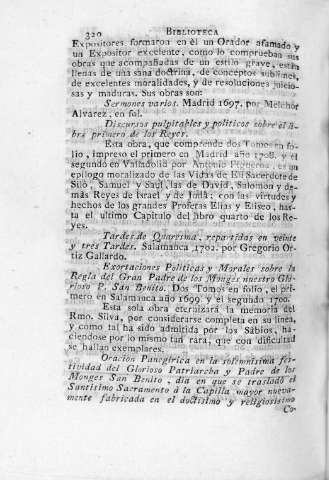 320 BIBLIOTECA
Expositores formaron en él un Orador afamado y
un Expositor excelente, como lo comprueban sus
obras que acompañadas de un estilo grave, están
llenas de una sana doctrina, de conceptos sublimes,
de excelentes moralidades, y de resoluciones juicio-
sas y maduras. Sus obras son:
Sermones varios. Madrid 1697. por Melchor
Alvarez, en fol.
Discursos pulpitables y politicos sobre el li-
bro primero de los Reyes.
Esta obra, que comprende dos Tomos en fo-
lio, impreso el primero en Madrid año 1708. y el
segundo en Valladolid por Antonio Figueroa, es un
epílogo moralizado de las Vidas de Elí Sacerdote de
Silo, Samuel y Saul, las de David, Salomon y de-
más Reyes de Israel y de Judá; con las virtudes y
hechos de los grandes Profetas Elías y Eliseo, has-
ta el ultimo Capitulo del libro quarto de los Re-
yes.
Tardes de Quaresma, repartidas en veinte
y tres Tardes. Salamanca 1702. por Gregorio Or-
tiz Gallardo.
Exortaciones Politicas y Morales sobre la
Regla del Gran Padre de los Monges nuestro Glo-
rioso P. San Benito. Dos Tomos en folio, el pri-
mero en Salamanca año 1699 y el segundo 1700.
Esta sola obra eternizará la memoria del
Rmo. Silva, por considerarse completa en su linea,
y como tal ha sido admitida por los Sábios, ha-
ciendose por lo mismo tan rara, que con dificultad
se hallan exemplares.
Oracion Panegirica en la solemnisima fes-
tividad del Glorioso Patriarcha y Padre de los
Monges San Benito, dia en que se trasladó el
Santisimo Sacramento á la Capilla mayor nueva-
mente fabricada en el doctisimo y religiosisimo
Co-